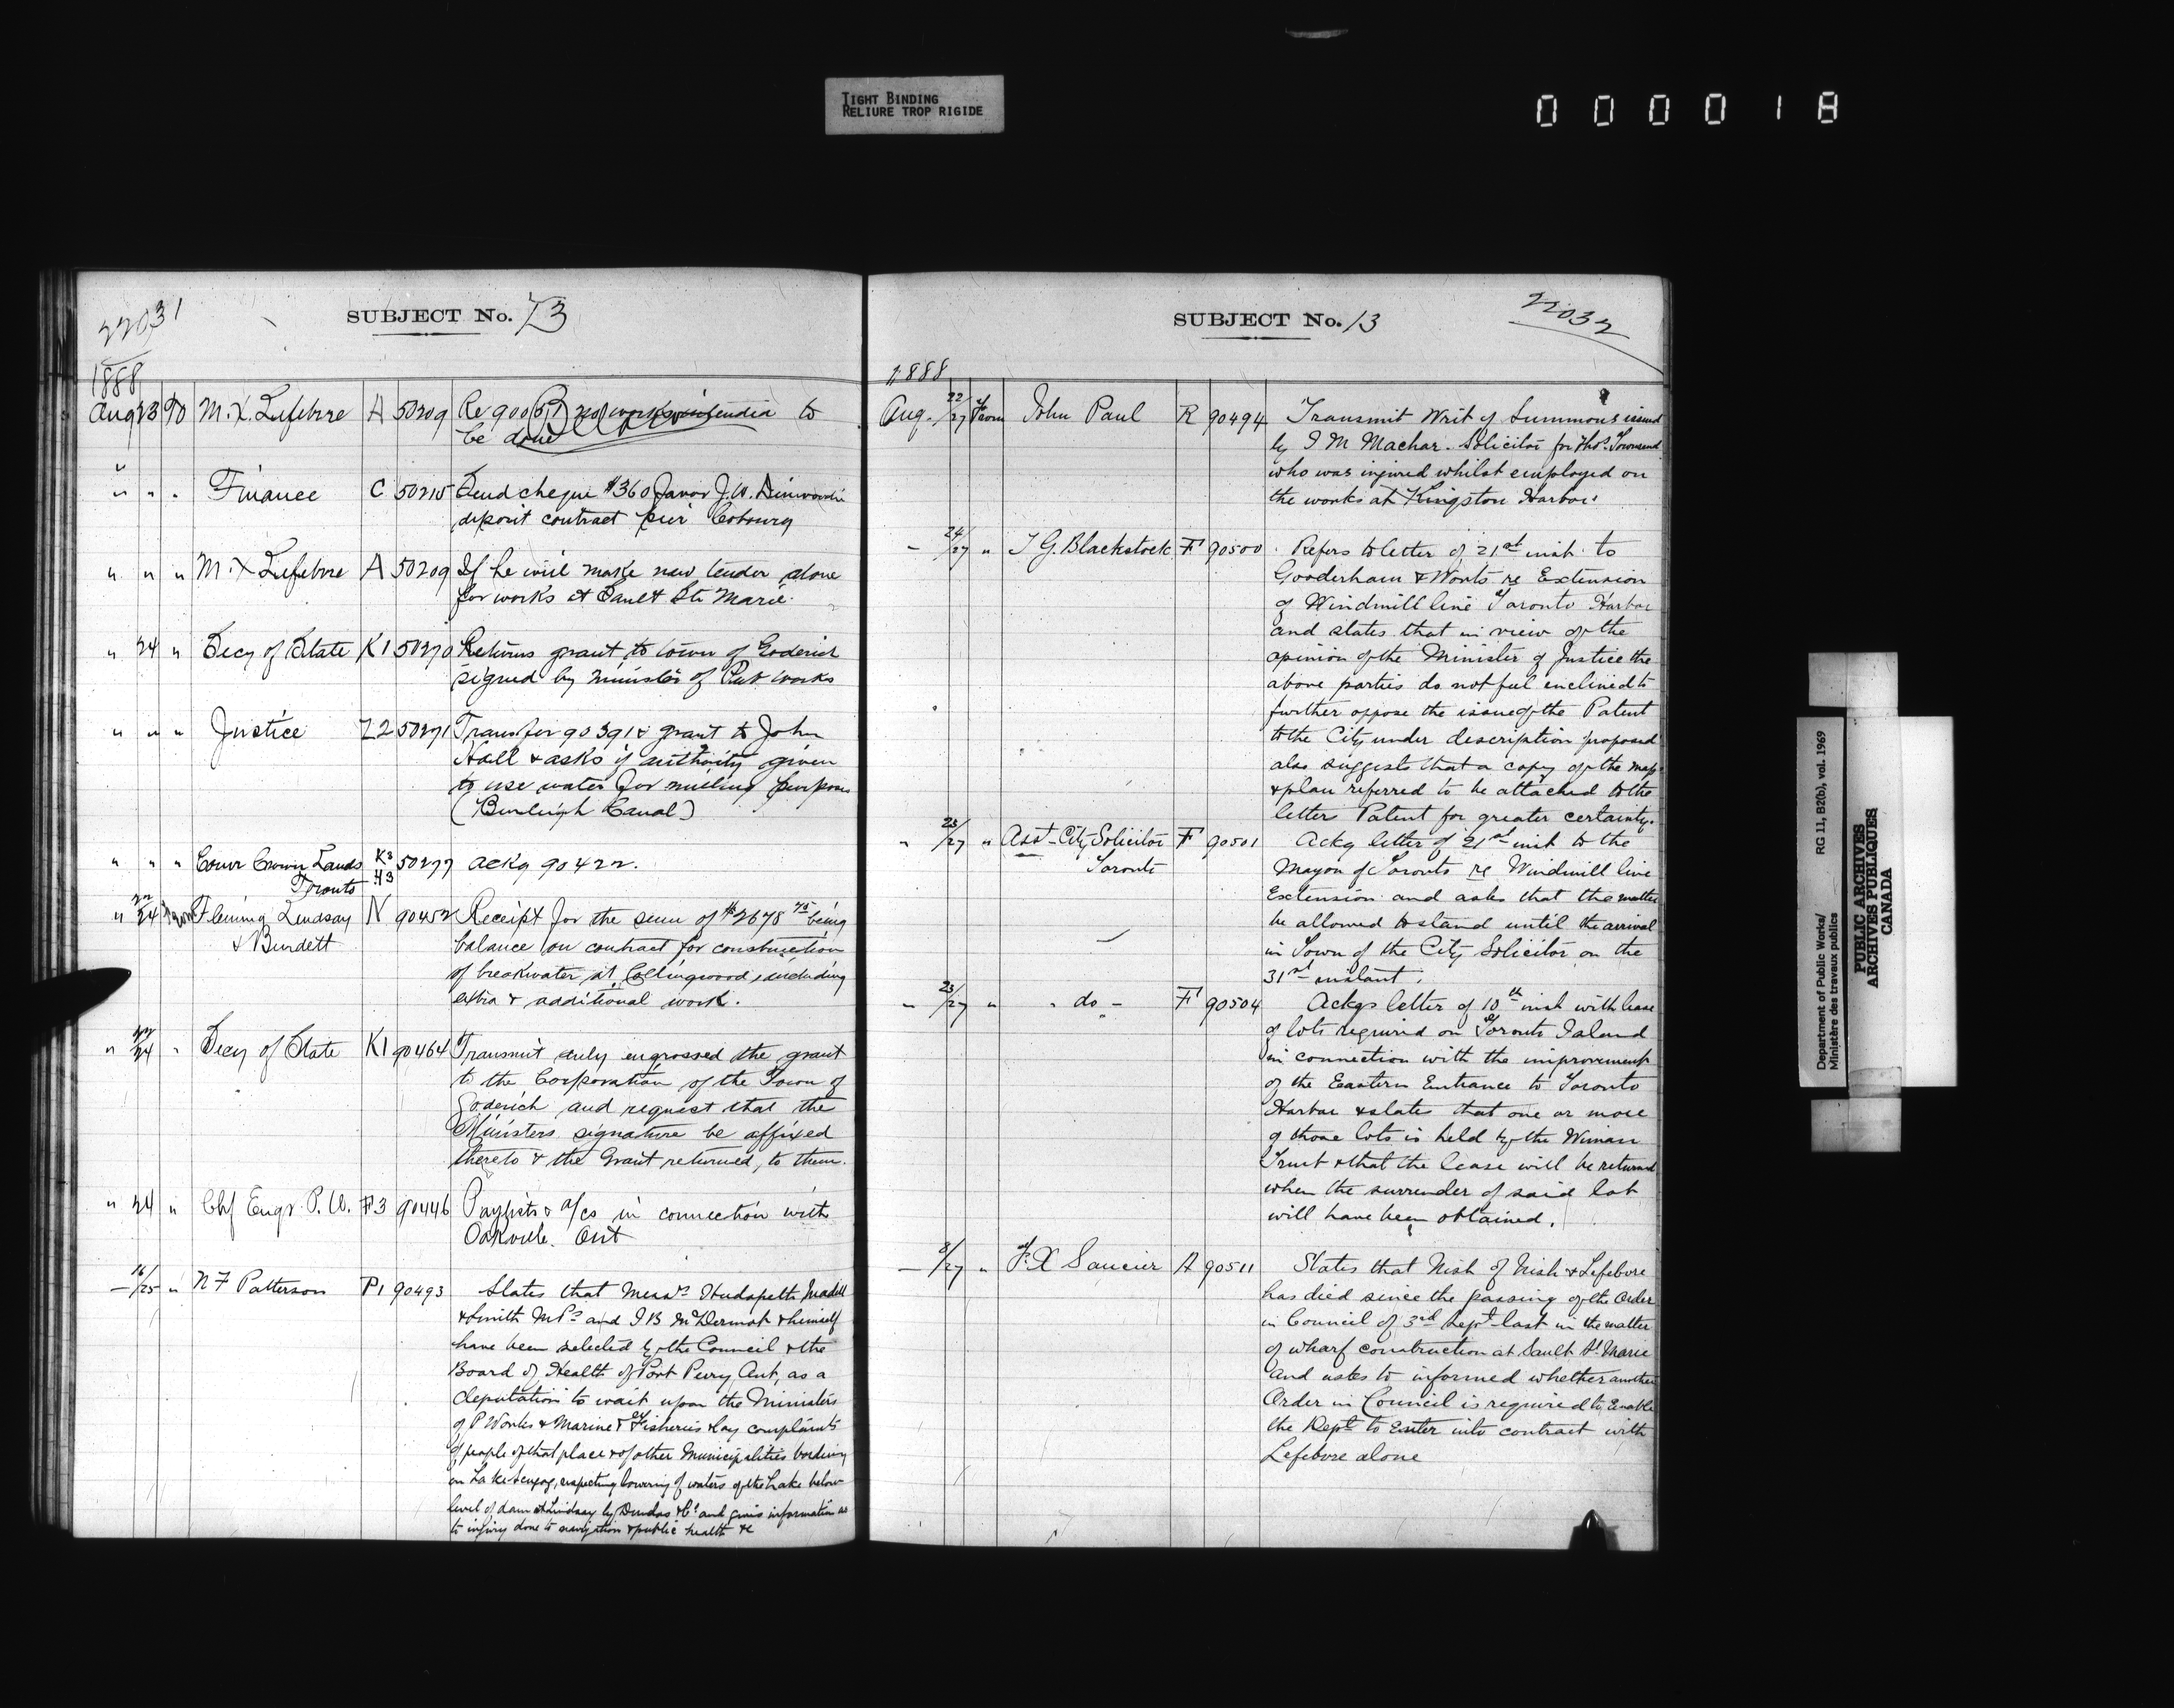 TIGHT BINDING
RELIURE TROP RIGIDE
0 0 0 0 1 8
22031
SUBJECT No. 13
1888
Aug 23 To M. X. Lefebvre A 50209 Re 90051 no works to
be done
" " " Finance C 50215 Send cheque $360 favor J. W. Dinwoodie
deposit contract pier Cobourg
" " " M. X Lefebvre A 50209 If he will make new tender alone
for works at Sault Ste Marie
" 24 " Secy of State K1 50270 Returns grant to town of Goderich
signed by minister of Pub works
" " " Justice Z2 50271 Transfer 90391 & grant to John
Hall & asks if authority given
to use water for milling purposes
(Burleigh Canal)
" " " Comr Crown Lands K2 50277 ackg 90422.
Toronto H3
" 22/24 From Fleming Lindsay N 90452 Receipt for the sum of $2678 75 being
& Burdett balance on contract for construction
of breakwater at Collingwood, including
extra & additional work.
" 22/24 " Secy of State K1 90464 Transmit duly engrossed the grant
to the Corporation of the Town of
Goderich and request that the
Ministers signature be affixed
thereto & the Grant returned, to them.
" 24 " Chf Engr. P. W. F3 90446 Paylists & a/cs in connection with
Oakville. Ont
" 16/25 " N F Patterson P1 90493 States that Messrs Hudspeth Madill
& Smith M.Ps and J B McDermot & himself
have been selected by the Council & the
Board of Health of Port Perry, Ont, as a
deputation to wait upon the Ministers
of P Works & Marine & Fisheries & lay complaints
of people of that place & of other Municipalities bordering
on Lake Scugog, respecting lowering of waters of the Lake below
level of dam at Lindsay by Dundas & Co and gives information as
to injury done to navigation & public health &c
22032
SUBJECT No. 13
1888
Aug. 22/27 From John Paul R 90494 Transmit Writ of Summons issued
by J M Machar. Solicitor for Thos. Townsend
who was injured whilst employed on
the works at Kingston Harbor
" 24/27 " T G. Blackstock F 90500 Refers to letter of 21st inst. to
Gooderham & Worts re Extension
of Windmill line Toronto Harbor
and states that in view of the
opinion of the Minister of Justice the
above parties do not feel inclined to
further oppose the issue of the Patent
to the City under description proposed
also suggests that a copy of the map
& plan referred to be attached to the
letters Patent for greater certainty.
" 23/27 " Asst City Solicitor F 90501 Ackg letter of 21st inst to the
Toronto Mayor of Toronto re Windmill line
Extension and asks that the matter
be allowed to stand until the arrival
in Town of the City Solicitor on the
31st instant.
" 23/27 " " do - F 90504 Ackgs letter of 10th inst with lease
of lots required on Toronto Island
in connection with the improvement
of the Eastern Entrance to Toronto
Harbor & states that one or more
of those lots is held by the Wiman
Trust & that the lease will be returned
when the surrender of said lot
will have been obtained.
— 8/27 " F. X Saucier A 90511 States that Nish of Nish & Lefebvre
has died since the passing of the Order
in Council of 3rd Sept last in the matter
of wharf construction at Sault St. Marie
and askes to informed whether another
Order in Council is required to Enable
the Dept to Enter into contract with
Lefebvre alone
Department of Public Works/ RG 11, B2(b), vol. 1969
Ministère des travaux publics
PUBLIC ARCHIVES
ARCHIVES PUBLIQUES
CANADA